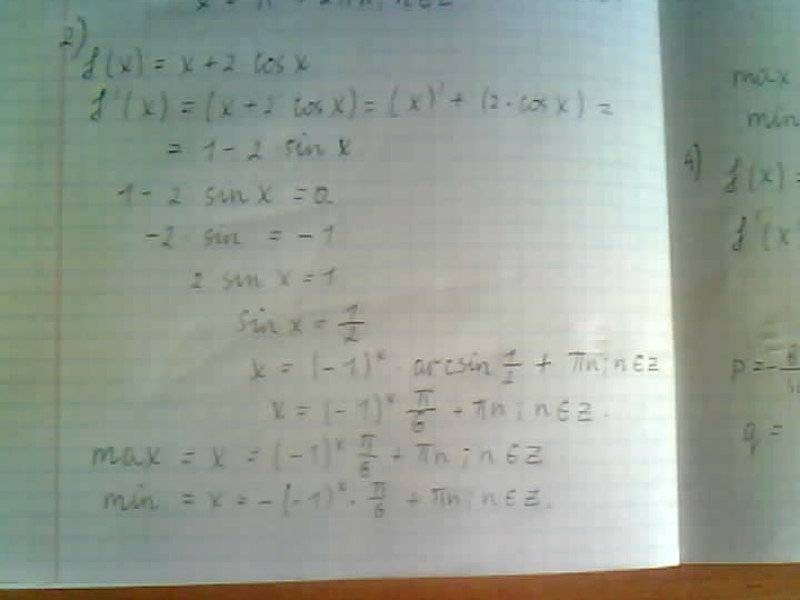 2)
f(x) = x + 2 cos x
f'(x) = (x + 2 cos x) = (x)' + (2 · cos x) =
= 1 - 2 sin x
1 - 2 sin x = 0
-2 sin = -1
2 sin x = 1
sin x = 1/2
x = (-1)ˣ · arcsin 1/2 + πn; n ∈ Z
x = (-1)ˣ π/6 + πn; n ∈ Z.
max = x = (-1)ˣ π/6 + πn; n ∈ Z
min = x = -(-1)ˣ · π/6 + πn; n ∈ Z.
max
min
4) f(x) =
f'(x
p = - 6
q =